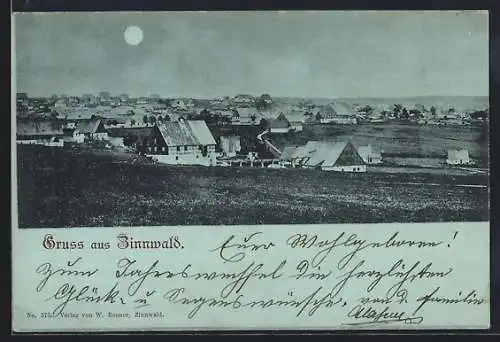 Gruss aus Zinnwald.
Euer Wohlgeboren!
Zum Jahreswechsel die herzlichsten
Glück- u Segenswünsche. von d. Familie
No. Verlag von W. Zinnwald.